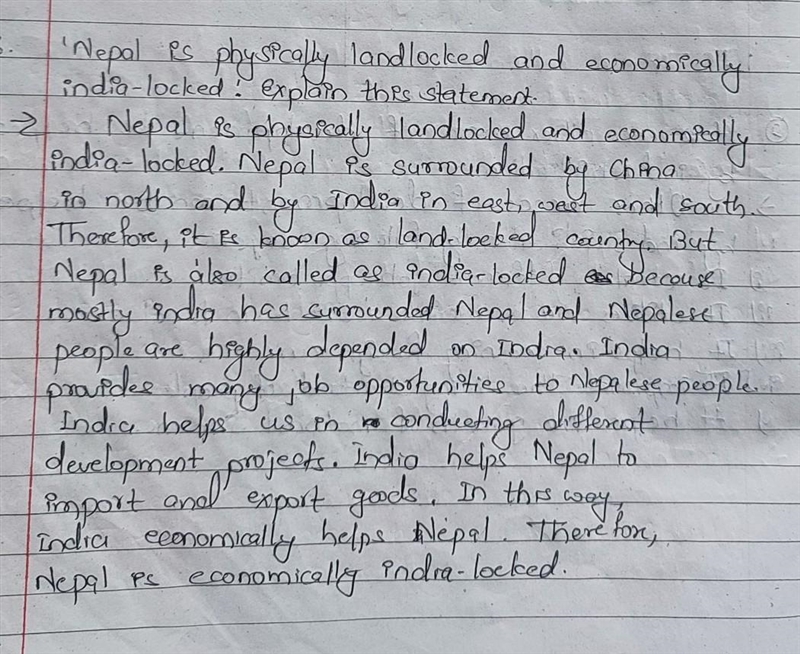 'Nepal is physically landlocked and economically
india-locked! explain this statement.
→ Nepal is physically landlocked and economically
india-locked. Nepal is surrounded by China
in north and by India in east, west and south.
Therefore, it is known as land-locked country. But
Nepal is also called as india-locked Because
mostly india has surrounded Nepal and Nepalese
people are highly depended on India. India
provides many job opportunities to Nepalese people.
India helps us in conducting different
development projects. India helps Nepal to
import and export goods. In this way,
india economically helps Nepal. Therefor,
Nepal is economically india-locked.